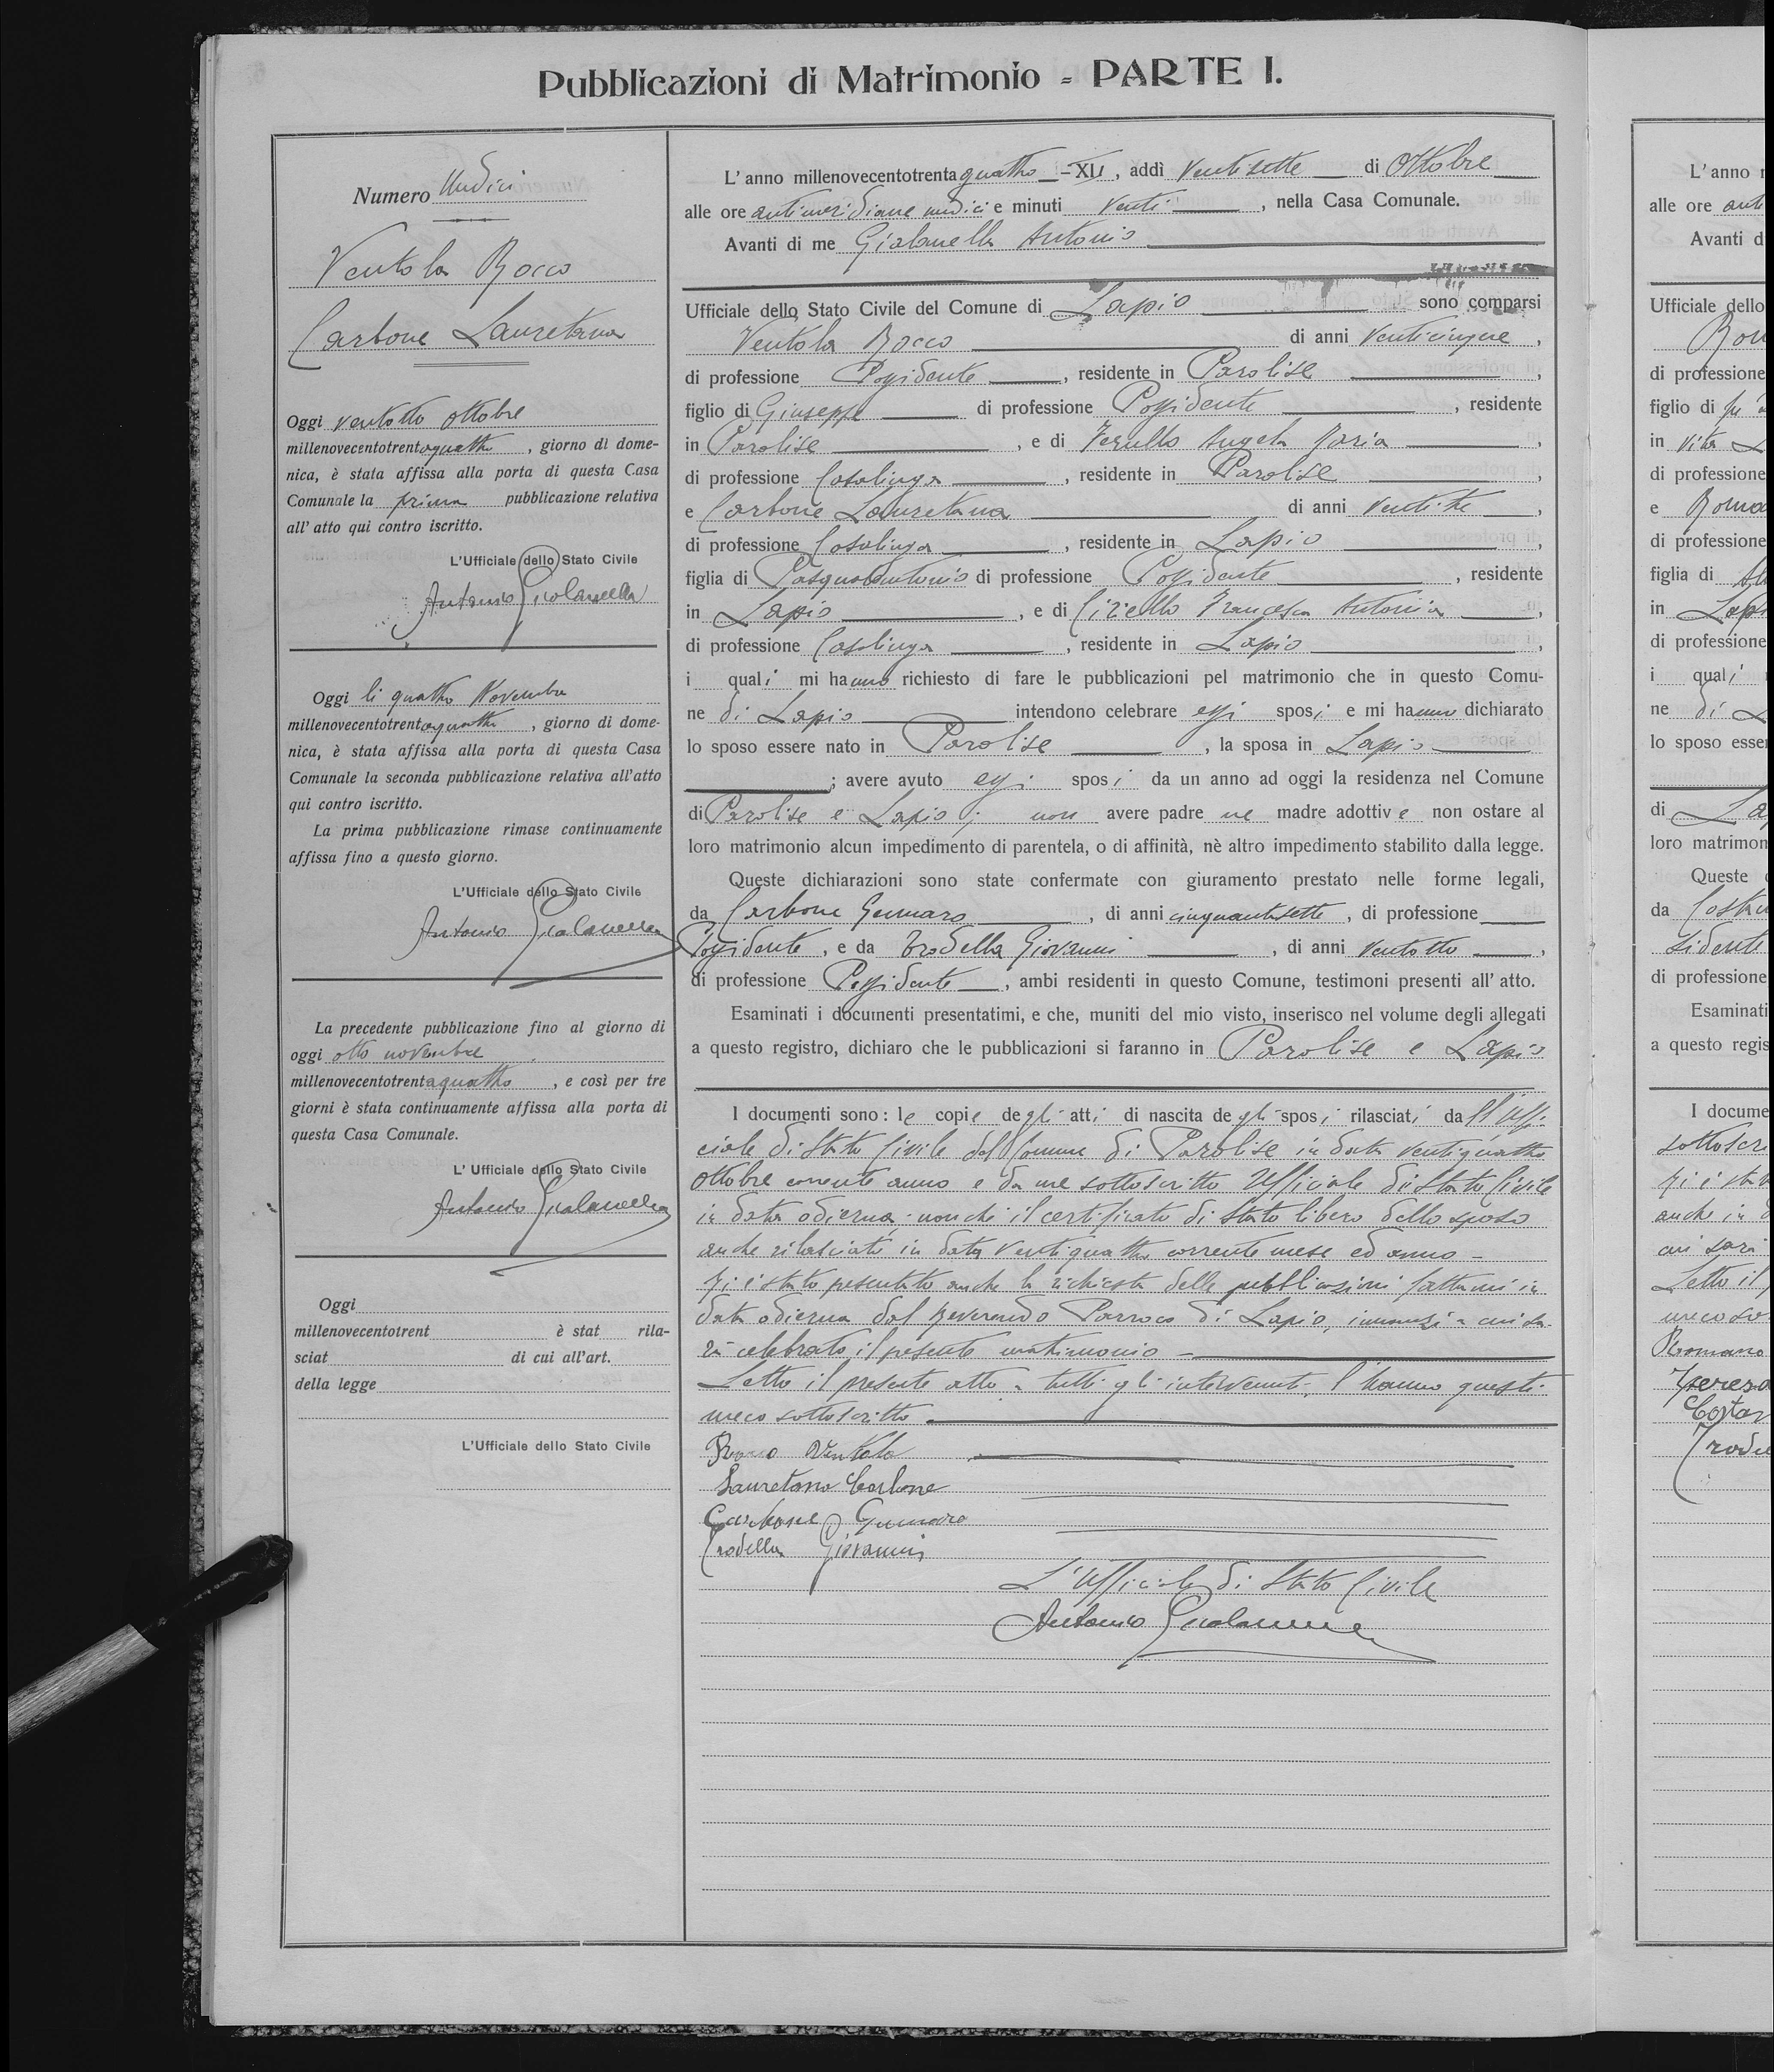 Pubblicazioni di Matrimonio - PARTE I.
Numero Undici
Ventola Rocco
Carbone Lauretana
Oggi ventotto ottobre
millenovecentotrentaquattro, giorno di dome-
nica, è stata affissa alla porta di questa Casa
Comunale la prima pubblicazione relativa
all' atto qui contro iscritto.
L'Ufficiale dello Stato Civile
Antonio Gialanella
Oggi li quattro Novembre
millenovecentotrentaquattro, giorno di dome-
nica, è stata affissa alla porta di questa Casa
Comunale la seconda pubblicazione relativa all'atto
qui contro iscritto.
La prima pubblicazione rimase continuamente
affissa fino a questo giorno.
L'Ufficiale dello Stato Civile
Antonio Gialanella
La precedente pubblicazione fino al giorno di
oggi otto novembre
millenovecentotrentaquattro, e così per tre
giorni è stata continuamente affissa alla porta di
questa Casa Comunale.
L' Ufficiale dello Stato Civile
Antonio Gialanella
Oggi
millenovecentotrent è stat rila-
sciat di cui all'art.
della legge
L'Ufficiale dello Stato Civile
L' anno millenovecentotrentaquattro - XII, addì ventisette di Ottobre
alle ore antimeridiane undici e minuti venti, nella Casa Comunale.
Avanti di me Gialanella Antonio
Ufficiale dello Stato Civile del Comune di Lapio sono comparsi
Ventola Rocco di anni venticinque,
di professione Possidente, residente in Parolise,
figlio di Giuseppe di professione Possidente, residente
in Parolise, e di Angela Maria,
di professione Casalinga, residente in Parolise,
e Carbone Lauretana di anni ventitre,
di professione Casalinga, residente in Lapio,
figlia di Pasqualantonio di professione Possidente, residente
in Lapio, e di Ciriello Francesca Antonia,
di professione Casalinga, residente in Lapio,
i quali mi hanno richiesto di fare le pubblicazioni pel matrimonio che in questo Comu-
ne di Lapio intendono celebrare essi sposi e mi hanno dichiarato
lo sposo essere nato in Parolise, la sposa in Lapio
; avere avuto essi sposi da un anno ad oggi la residenza nel Comune
di Parolise e Lapio; non avere padre ne madre adottive non ostare al
loro matrimonio alcun impedimento di parentela, o di affinità, nè altro impedimento stabilito dalla legge.
Queste dichiarazioni sono state confermate con giuramento prestato nelle forme legali,
da Carbone Gennaro, di anni cinquantasette, di professione
Possidente, e da Trodella Giovanni, di anni ventotto,
di professione Possidente, ambi residenti in questo Comune, testimoni presenti all' atto.
Esaminati i documenti presentatimi, e che, muniti del mio visto, inserisco nel volume degli allegati
a questo registro, dichiaro che le pubblicazioni si faranno in Parolise e Lapio
I documenti sono: le copie degli atti di nascita degli sposi rilasciati dall'Uffi-
ciale di Stato Civile del Comune di Parolise in data ventiquattro
ottobre corrente anno e da me sottoscritto Ufficiale di Stato Civile
in data odierna; nonchè il certificato di Stato libero dello sposo
anche rilasciato in data ventiquattro corrente mese ed anno -
Mi è stata presentata anche la richiesta delle pubblicazioni fattami in
data odierna dal Reverendo Parroco di Lapio, innanzi a cui sa-
rà celebrato il presente matrimonio -
Letto il presente atto a tutti gli intervenuti, l'hanno questi
meco sottoscritto
Rocco Ventola
Lauretana Carbone
Carbone Gennaro
Trodella Giovanni
L'Ufficiale di Stato Civile
Antonio Gialanella
L'anno
alle ore
Avanti d
Ufficiale dello
di professione
figlio di fu
in
di professione
e Roma
di professione
figlia di
in Lapi
di professione
i quali
ne di L
lo sposo esser
di La
loro matrimon
Queste
da Costan
sidente
di professione
Esaminati
a questo regis
I docume
sottoscri
anche in
cui sarà
Letto il
meco so
Romano
Teresa
Costan
Trode